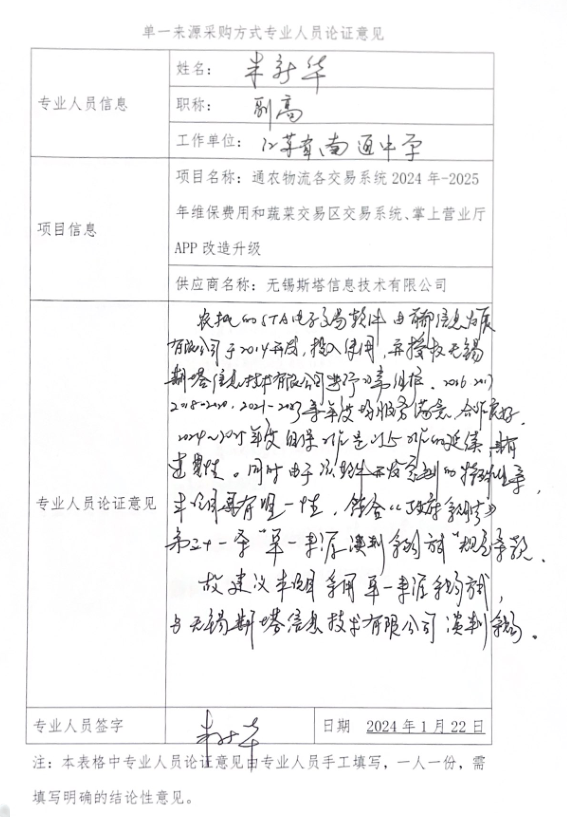 单一来源采购方式专业人员论证意见
专业人员信息
姓名：
职称：副高
工作单位：江苏省南通中学
项目信息
项目名称：通农物流各交易系统 2024 年-2025
年维保费用和蔬菜交易区交易系统、掌上营业厅
APP 改造升级
供应商名称：无锡斯塔信息技术有限公司
专业人员论证意见
农批的STA电子交易软件由 信息发展
有限公司于2014开发，投入使用，并授权无锡
斯塔信息技术有限公司进行 维护。2016 2017
2018-2020，2021-2023 年度均服务满意，合作良好。
2024～2025年度 是以 的延续，具有
连贯性。同时由于 软件开发 的特殊性等，
本项目具有唯一性，符合《政府采购法》
第三十一条"单一来源 采购方式"规定条款。
故建议本项目采用单一来源采购方式，
与无锡斯塔信息技术有限公司谈判采购。
专业人员签字
日期 2024 年 1 月 22 日
注：本表格中专业人员论证意见由专业人员手工填写，一人一份，需
填写明确的结论性意见。